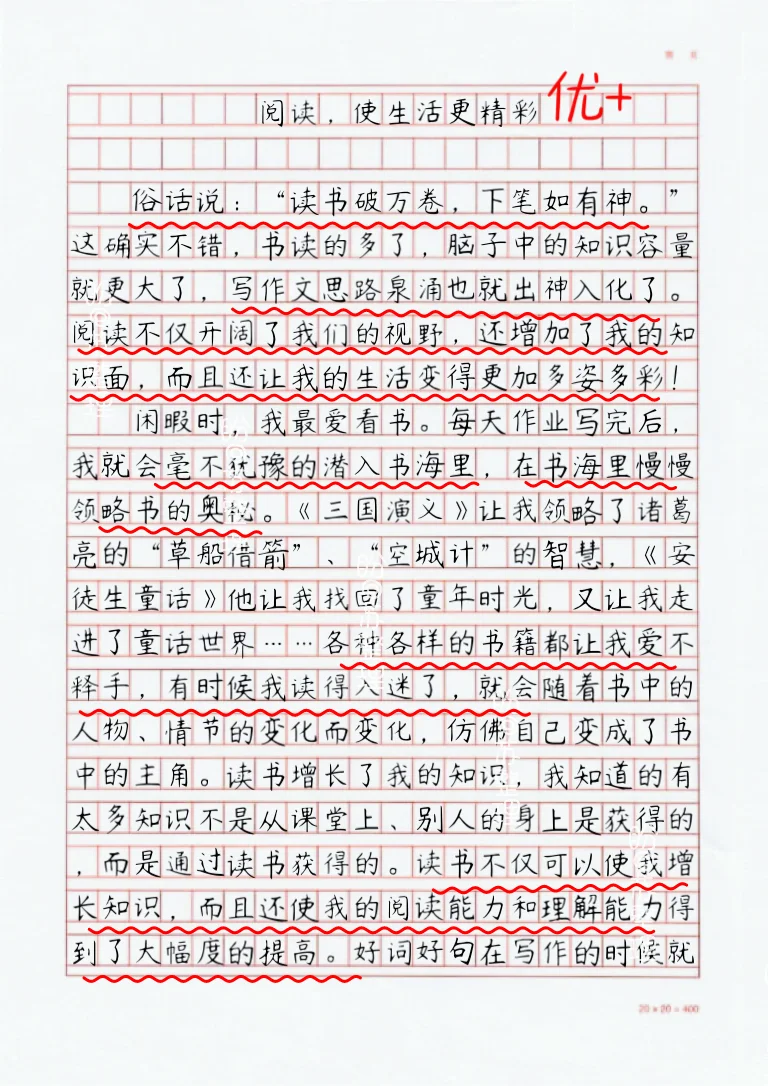 阅读，使生活更精彩 优+
俗话说：“读书破万卷，下笔如有神。”
这确实不错，书读的多了，脑子中的知识容量
就更大了，写作文思路泉涌也就出神入化了。
阅读不仅开阔了我们的视野，还增加了我的知
识面，而且还让我的生活变得更加多姿多彩！
闲暇时，我最爱看书。每天作业写完后，
我就会毫不犹豫的潜入书海里，在书海里慢慢
领略书的奥秘。《三国演义》让我领略了诸葛
亮的“草船借箭”、“空城计”的智慧，《安
徒生童话》他让我找回了童年时光，又让我走
进了童话世界……各种各样的书籍都让我爱不
释手，有时候我读得入迷了，就会随着书中的
人物、情节的变化而变化，仿佛自己变成了书
中的主角。读书增长了我的知识，我知道的有
太多知识不是从课堂上、别人的身上是获得的
，而是通过读书获得的。读书不仅可以使我增
长知识，而且还使我的阅读能力和理解能力得
到了大幅度的提高。好词好句在写作的时候就
20×20=400